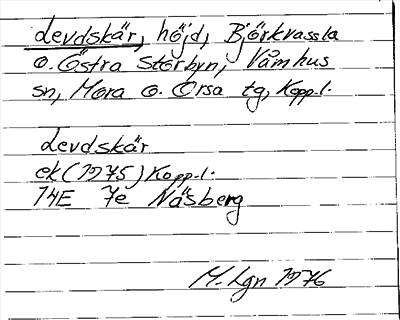 Levdskär, höjd, Björkvassla
o. Östra Storbyn, Våmhus
sn, Mora o. Orsa tg, Kopp.l.
Levdskär
ek (1975) Kopp.l.
14E 7e Näsberg
M. Lgn 1976